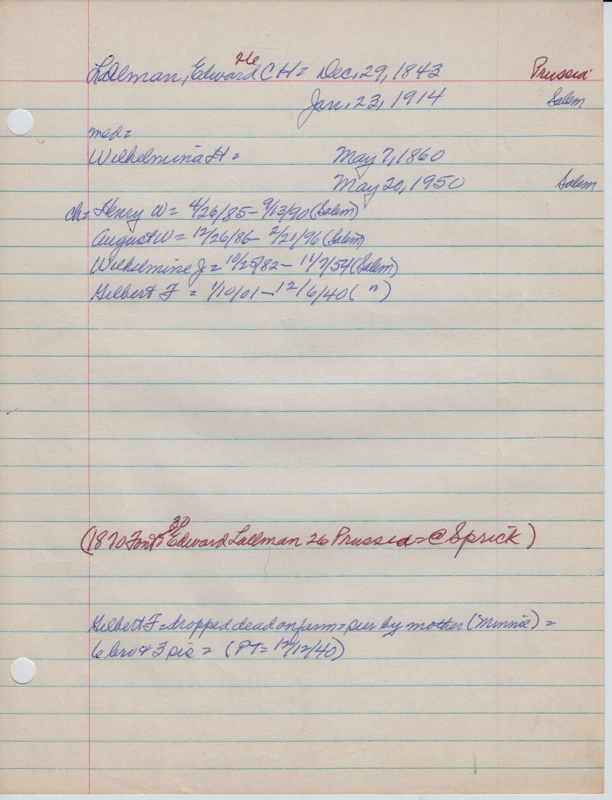 26
Lallman, Edward C H = Dec. 29, 1843 Prussia
Jan. 23, 1914 Salem
med =
Wilhelmina H = May 7, 1860
May 20, 1950 Salem
ch = Henry W = 4/26/85 - 9/13/90 (Salem)
August W = 12/26/86 - 2/21/96 (Salem)
Wilhelmine J = 10/25/82 - 11/7/54 (Salem)
Gilbert F = 1/10/01 - 12/6/40 ( " )
30
(1870 Font = Edward Lallman 26 Prussia = @ Sprick)
Gilbert F = dropped dead on farm = sur by mother ("Minnie") =
6 bro & 3 sis = (PT = 12/12/40)